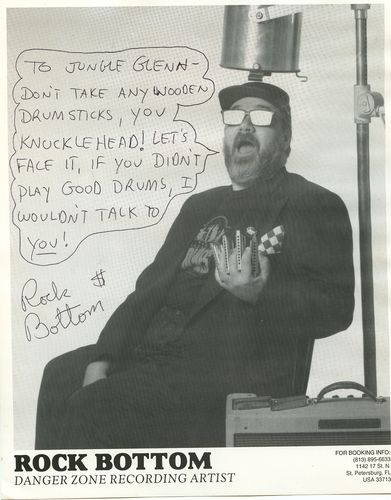 TO JUNGLE GLENN-
DON'T TAKE ANY WOODEN
DRUMSTICKS, YOU
KNUCKLEHEAD! LET'S
FACE IT, IF YOU DIDN'T
PLAY GOOD DRUMS, I
WOULDN'T TALK TO
YOU!
Rock $
Bottom
ROCK BOTTOM
DANGER ZONE RECORDING ARTIST
FOR BOOKING INFO:
(813) 895-6633
1142 17 St. N.
St. Petersburg, FL
USA 33713